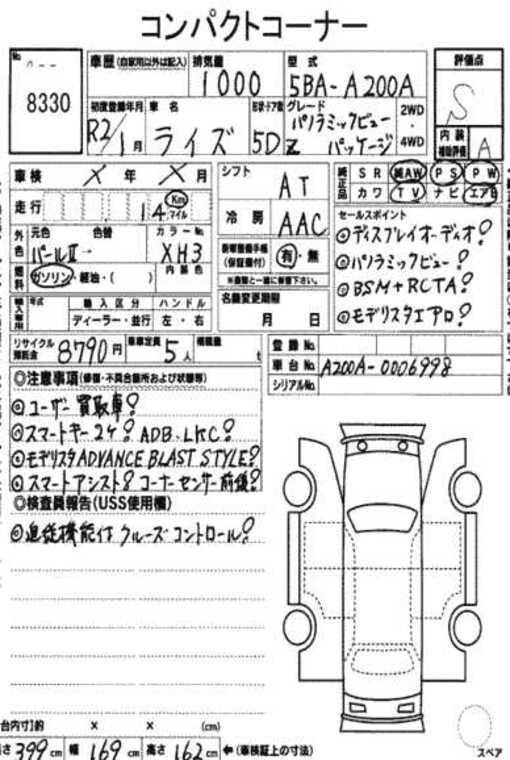 コンパクトコーナー
No.
8330
車歴 (自家用以外は記入)
排気量
1000
型式
5BA-A200A
評価点
S
内装
補助評価
A
初度登録年月
R2/1月
車名
ライズ
形状・ドア数
5D
グレード
パノラミックビュー
Z パッケージ
2WD
・
4WD
車検 X年 X月
シフト
AT
純正品
SR 純AW PS PW
カワ TV ナビ エアB
走行
14 Km マイル
冷房
AAC
セールスポイント
◎ディスプレイオーディオ!
◎パノラミックビュー!
◎BSM+RCTA!
◎モデリスタエアロ!
外色
元色 色替
パールⅡ→
カラーNo.
XH3
(保証書付)
有・無
※車歴と一緒に御答下さい。
燃料
ガソリン・軽油・( )
内装色
名義変更期限
月 日
年式
輸入区分
ハンドル
ディーラー・並行
左・右
リサイクル
預託金
8790円
乗車定員
5人
積載量
t
登録No.
車台No.
A200A-0006998
シリアルNo.
◎注意事項 (修復・不具合箇所および状態等)
◎ユーザー買取車!
◎スマートキー2ケ! ADB.LKC!
◎モデリスタADVANCE BLAST STYLE!
◎スマートアシスト! コーナーセンサー前後!
◎検査員報告(USS使用欄)
◎追従機能付クルーズコントロール!
台内寸)約 × × (cm)
さ 399cm 幅 169cm 高さ 162cm ←(車検証上の寸法)
スペア